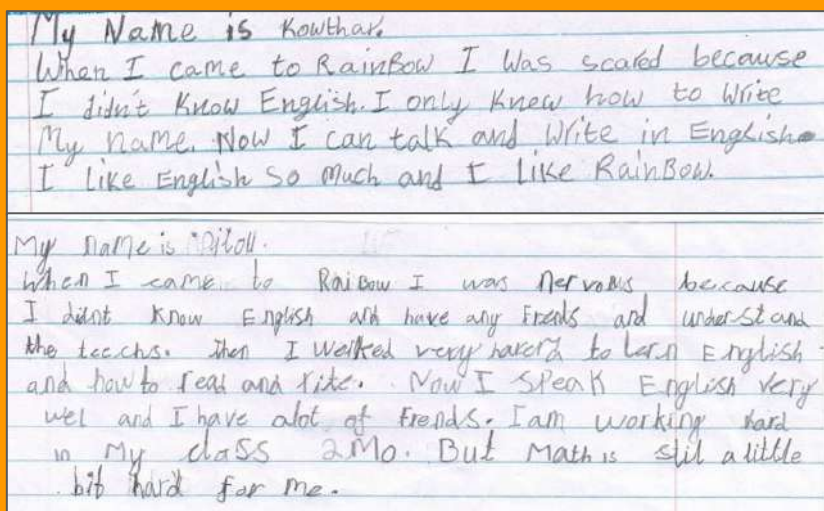 My Name is Kowthar.
When I came to RainBow I Was scared because
I didn't Know English. I only Knew how to Write
My name. Now I can talk and Write in English.
I like English So Much and I like RainBow.
My name is
When I came to RaiBow I was nervous because
I didnt know English and have any Frends and understand
the teechs. Then I welked very harerd to lern English
and how to read and rite. Now I Speak English very
wel and I have alot of Frends. I am working hard
in My class 2Mo. But Math is stil a little
bit hard for me.